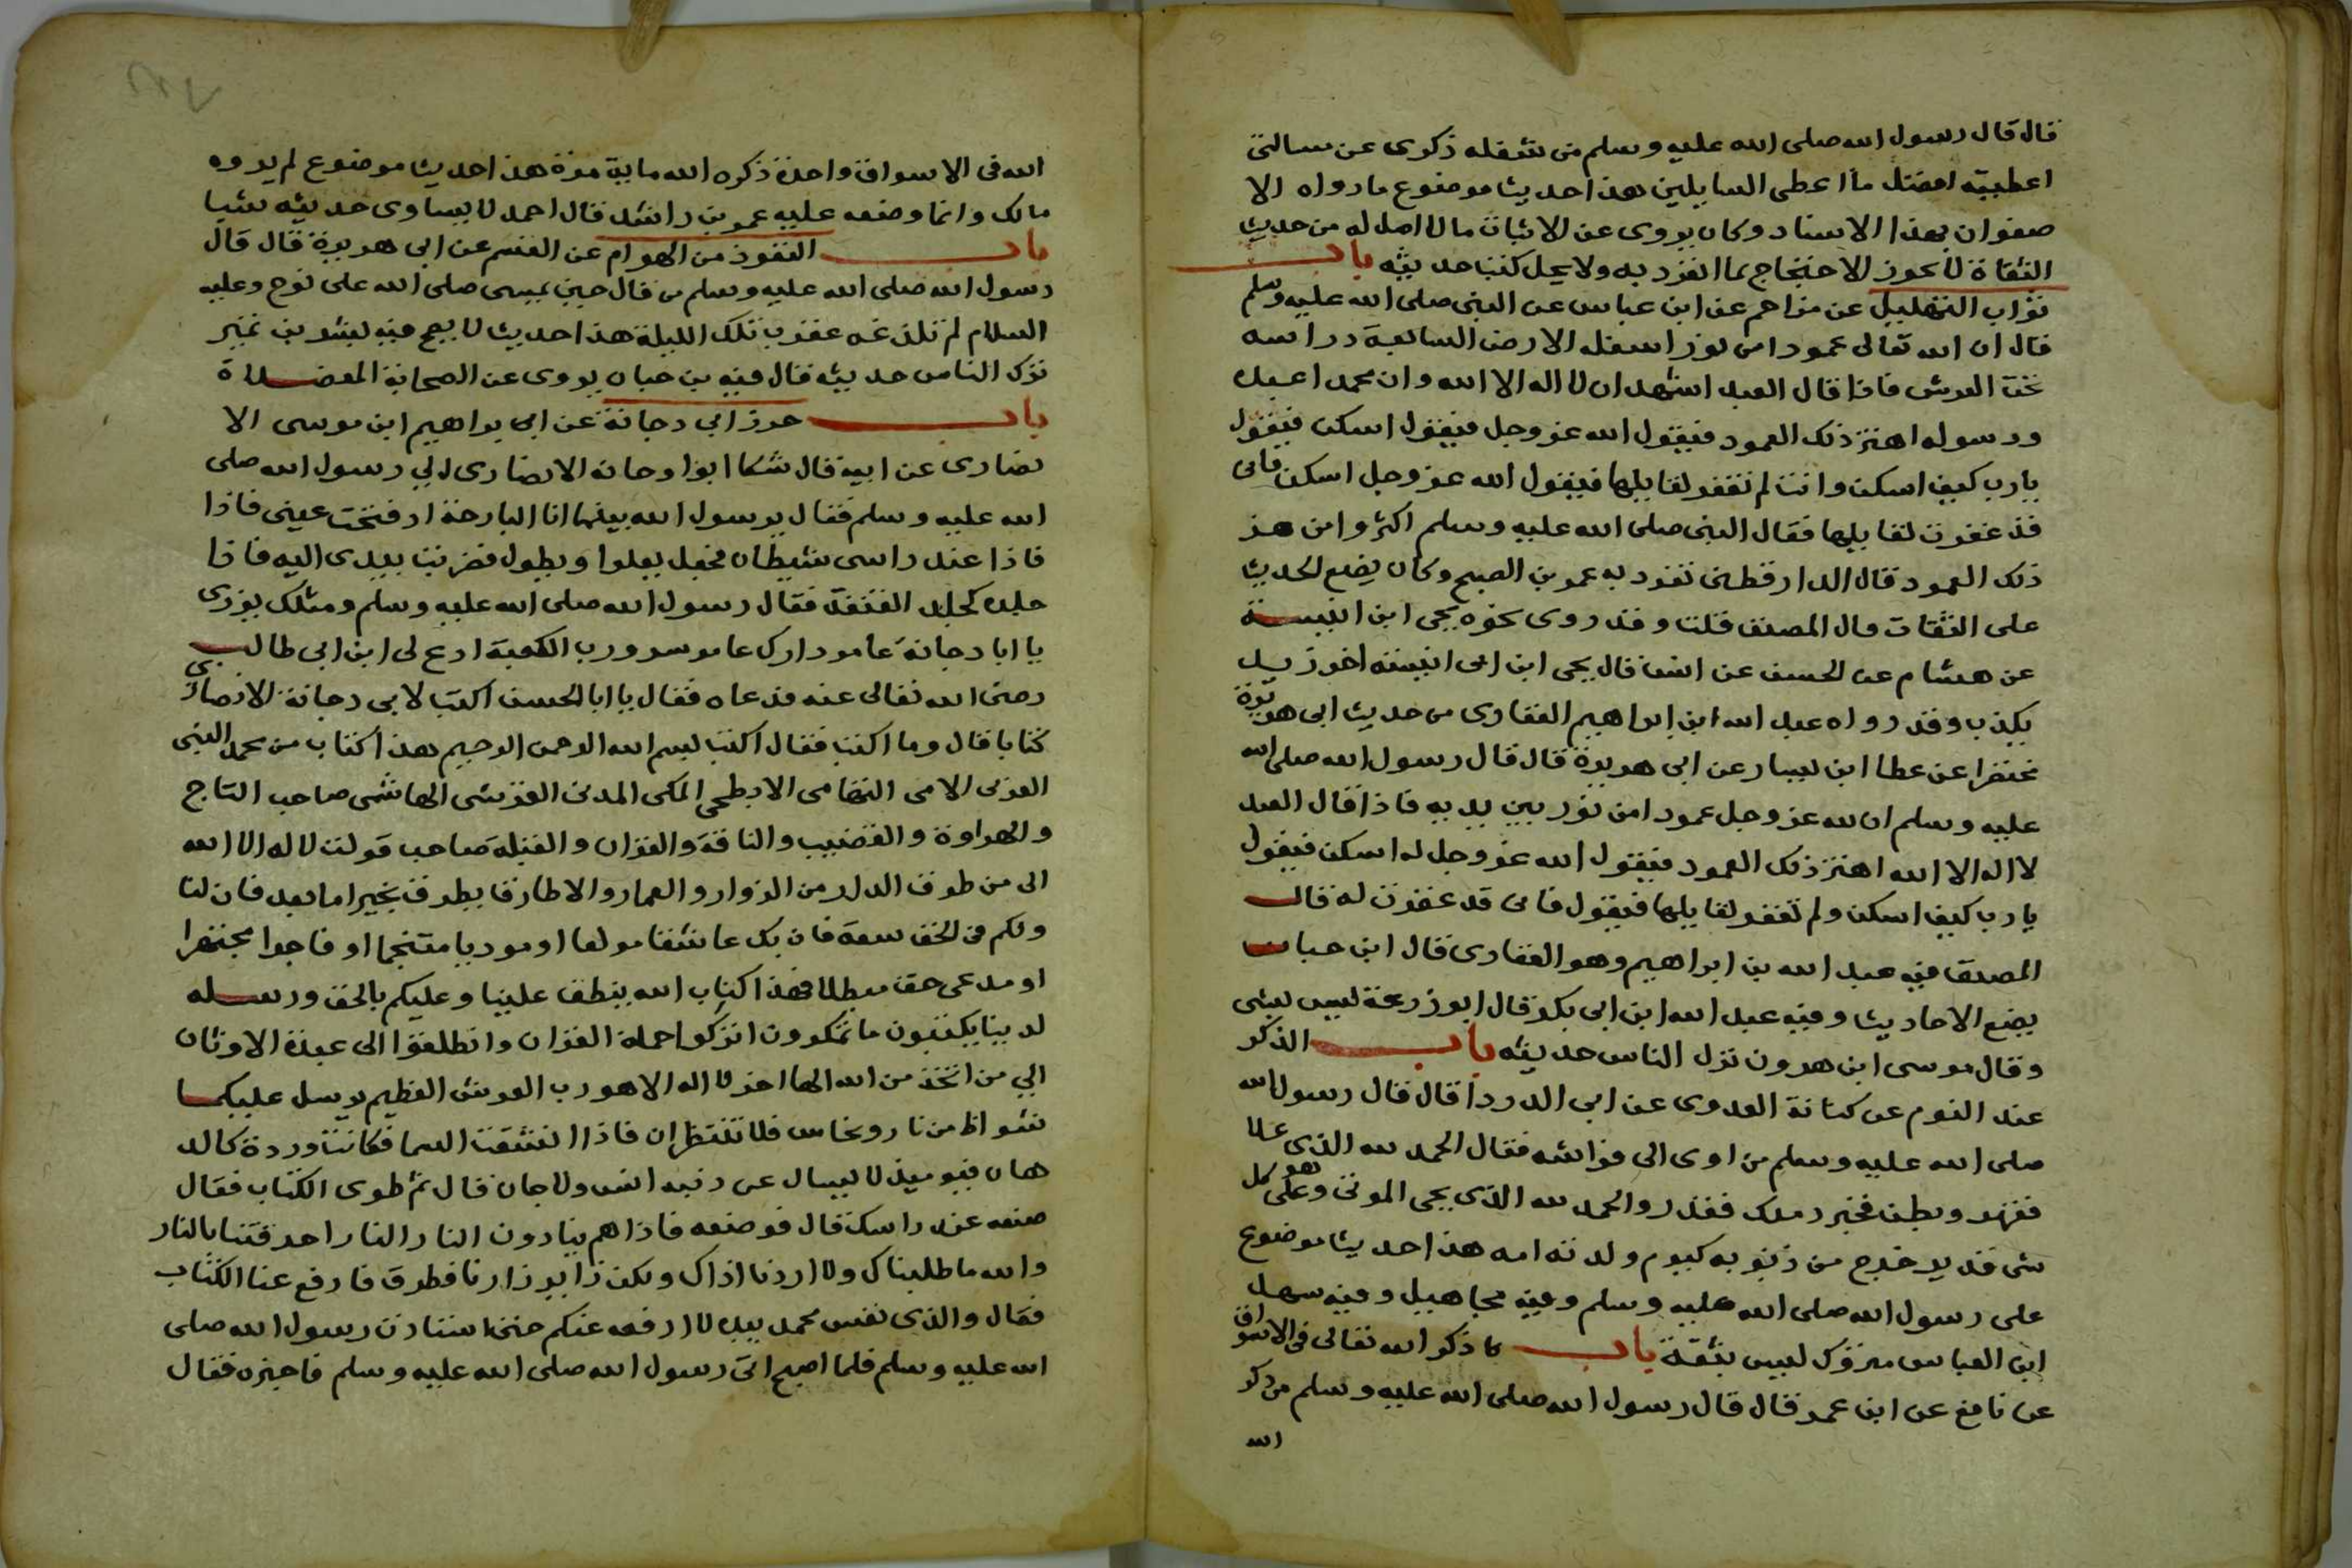 قال قال رسول الله صلى الله عليه وسلم من شغله ذكرى عن مسالتى
اعطيته افضل ما اعطى السايلين هذا حديث موضوع ما رواه الا
صفوان بهذا الاسناد وكان يروى عن الاثبات ما لا اصل له من حديث
الثقاة لا يجوز الاحتجاج بما انفرد به ولا يحل كتب حديثه باب
ثواب التهليل عن مزاحم عن ابن عباس عن النبى صلى الله عليه وسلم
قال ان الله تعالى عمودا من نور اسفله الارض السابعة وراسه
تحت العرش فاذا قال العبد اشهد ان لا اله الا الله وان محمد اعبده
ورسوله اهتز ذلك العمود فيقول الله عز وجل فيقول اسكن فيقول
يارب كيف اسكن وانت لم تغفر لقايلها فيقول الله عز وجل اسكن فانى
قد غفرت لقايلها فقال النبى صلى الله عليه وسلم اكثروا من هز
ذلك العمود قال الدارقطنى تفرد به عمر بن الصبح وكان يضع الحديث
على الثقات قال المصنف قلت وقد روى نحوه يحى ابن انيسة
عن هشام عن الحسن عن انس قال يحى ابن ابى انيسه اخوز يد
يكذب وقد رواه عبد الله ابن ابراهيم الغفارى من حديث ابى هريرة
مختصرا عن عطا ابن يسار عن ابى هريرة قال قال رسول الله صلى الله
عليه وسلم ان لله عز وجل عمودا من نور بين يديه فاذا قال العبد
لا اله الا الله اهتز ذلك العمود فيقول الله عز وجل له اسكن فيقول
يارب كيف اسكن ولم تغفر لقايلها فيقول فانى قد غفرت له قال
المصنف فيه عبد الله بن ابراهيم وهو الغفارى قال ابن حبان
يضع الاحاديث وفيه عبد الله ابن ابى بكر قال ابو زرعة ليس بشى
وقال موسى ابن هرون ترك الناس حديثه باب الذكر
عند النوم عن كنانة العدوى عن ابى الدردا قال قال رسول الله
صلى الله عليه وسلم من اوى الى فراشه فقال الحمد لله الذى علا
فقهر وبطن فخبر وملك فقدر والحمد لله الذى يحى الموتى وهو على كل
شى قدير خرج من ذنوبه كيوم ولدته امه هذا حديث موضوع
على رسول الله صلى الله عليه وسلم وفيه مجاهيل وفيه سهل
ابن العباس متروك ليس بثقة باب ما ذكر الله تعالى فى الاسواق
عن نافع عن ابن عمر قال قال رسول الله صلى الله عليه وسلم من ذكر
الله
الله فى الاسواق واحدة ذكره الله ماية مرة هذا حديث موضوع لم يروه
مالك وانما وضعه عليه عمر بن راشد قال احمد لا يساوى حديثه شيا
باب التعوذ من الهوام عن القسم عن ابى هريرة قال قال
رسول الله صلى الله عليه وسلم من قال حين يمسى صلى الله على نوح وعليه
السلام لم تلدغه عقرب تلك الليلة هذا حديث لا يصح فيه بشر بن نمير
ترك الناس حديثه قال فيه بن حبان يروى عن الصحابة المعضلاة
باب حرز ابى دجانة عن ابى براهيم ابن موسى الا
نصارى عن ابيه قال شكا ابوا دجانه الانصارى الى رسول الله صلى
الله عليه وسلم فقال يرسول الله بينما انا البارحة اذ فتحت عينى فاذا
فاذا عند راسى شيطان فجعل يعلوا ويطول فضربت بيدى اليه فاذا
جلده كجلد القنفذ فقال رسول الله صلى الله عليه وسلم ومثلك يوذى
يا ابا دجانة عامر دارك عامر سو ورب الكعبة ادع لى ابن ابى طالب
رضى الله تعالى عنه فدعاه فقال يا ابا الحسن اكتب لابى دجانة الانصارى
كتابا قال وما اكتب فقال اكتب بسم الله الرحمن الرحيم هذا كتاب من محمد النبى
العربى الامى التهامى الابطحى المكى المدنى القرشى الهاشمى صاحب التاج
والهراوة والقضيب والناقة والقران والقبلة صاحب قولت لا اله الا الله
الى من طرق الدار من الزوار والعمار والا طارقا يطرق بخير اما بعد فان لنا
ولكم فى الحق سعة فان يك عاشقا مولعا او موديا مقتحما او فاجرا مجتهرا
او مدعى حق مبطلا فهذا كتاب الله ينطق علينا وعليكم بالحق ورسله
لدينا يكتبون ما تمكرون اتركوا حملة القران وانطلقوا الى عبدة الاوثان
الى من اتخذ من الله الها اخر لا اله الا هو رب العرش العظيم يرسل عليكما
شواظ من نار ونحاس فلا تنتظران فاذا انشقت السما فكانت وردة كالد
هان فيوميذ لا يسال عن ذنبه انس ولا جان قال ثم طوى الكتاب فقال
ضعه عند راسك قال فوضعه فاذا هم ينادون النار النار احرقتنا بالنار
والله ما طلبناك ولا اردنا اذاك ولكن زاير زارنا فطرق فارفع عنا الكتاب
فقال والذى نفس محمد بيده لا ارفعه عنكم حتى استاذن رسول الله صلى
الله عليه وسلم فلما اصبح اتى رسول الله صلى الله عليه وسلم فاخبره فقال